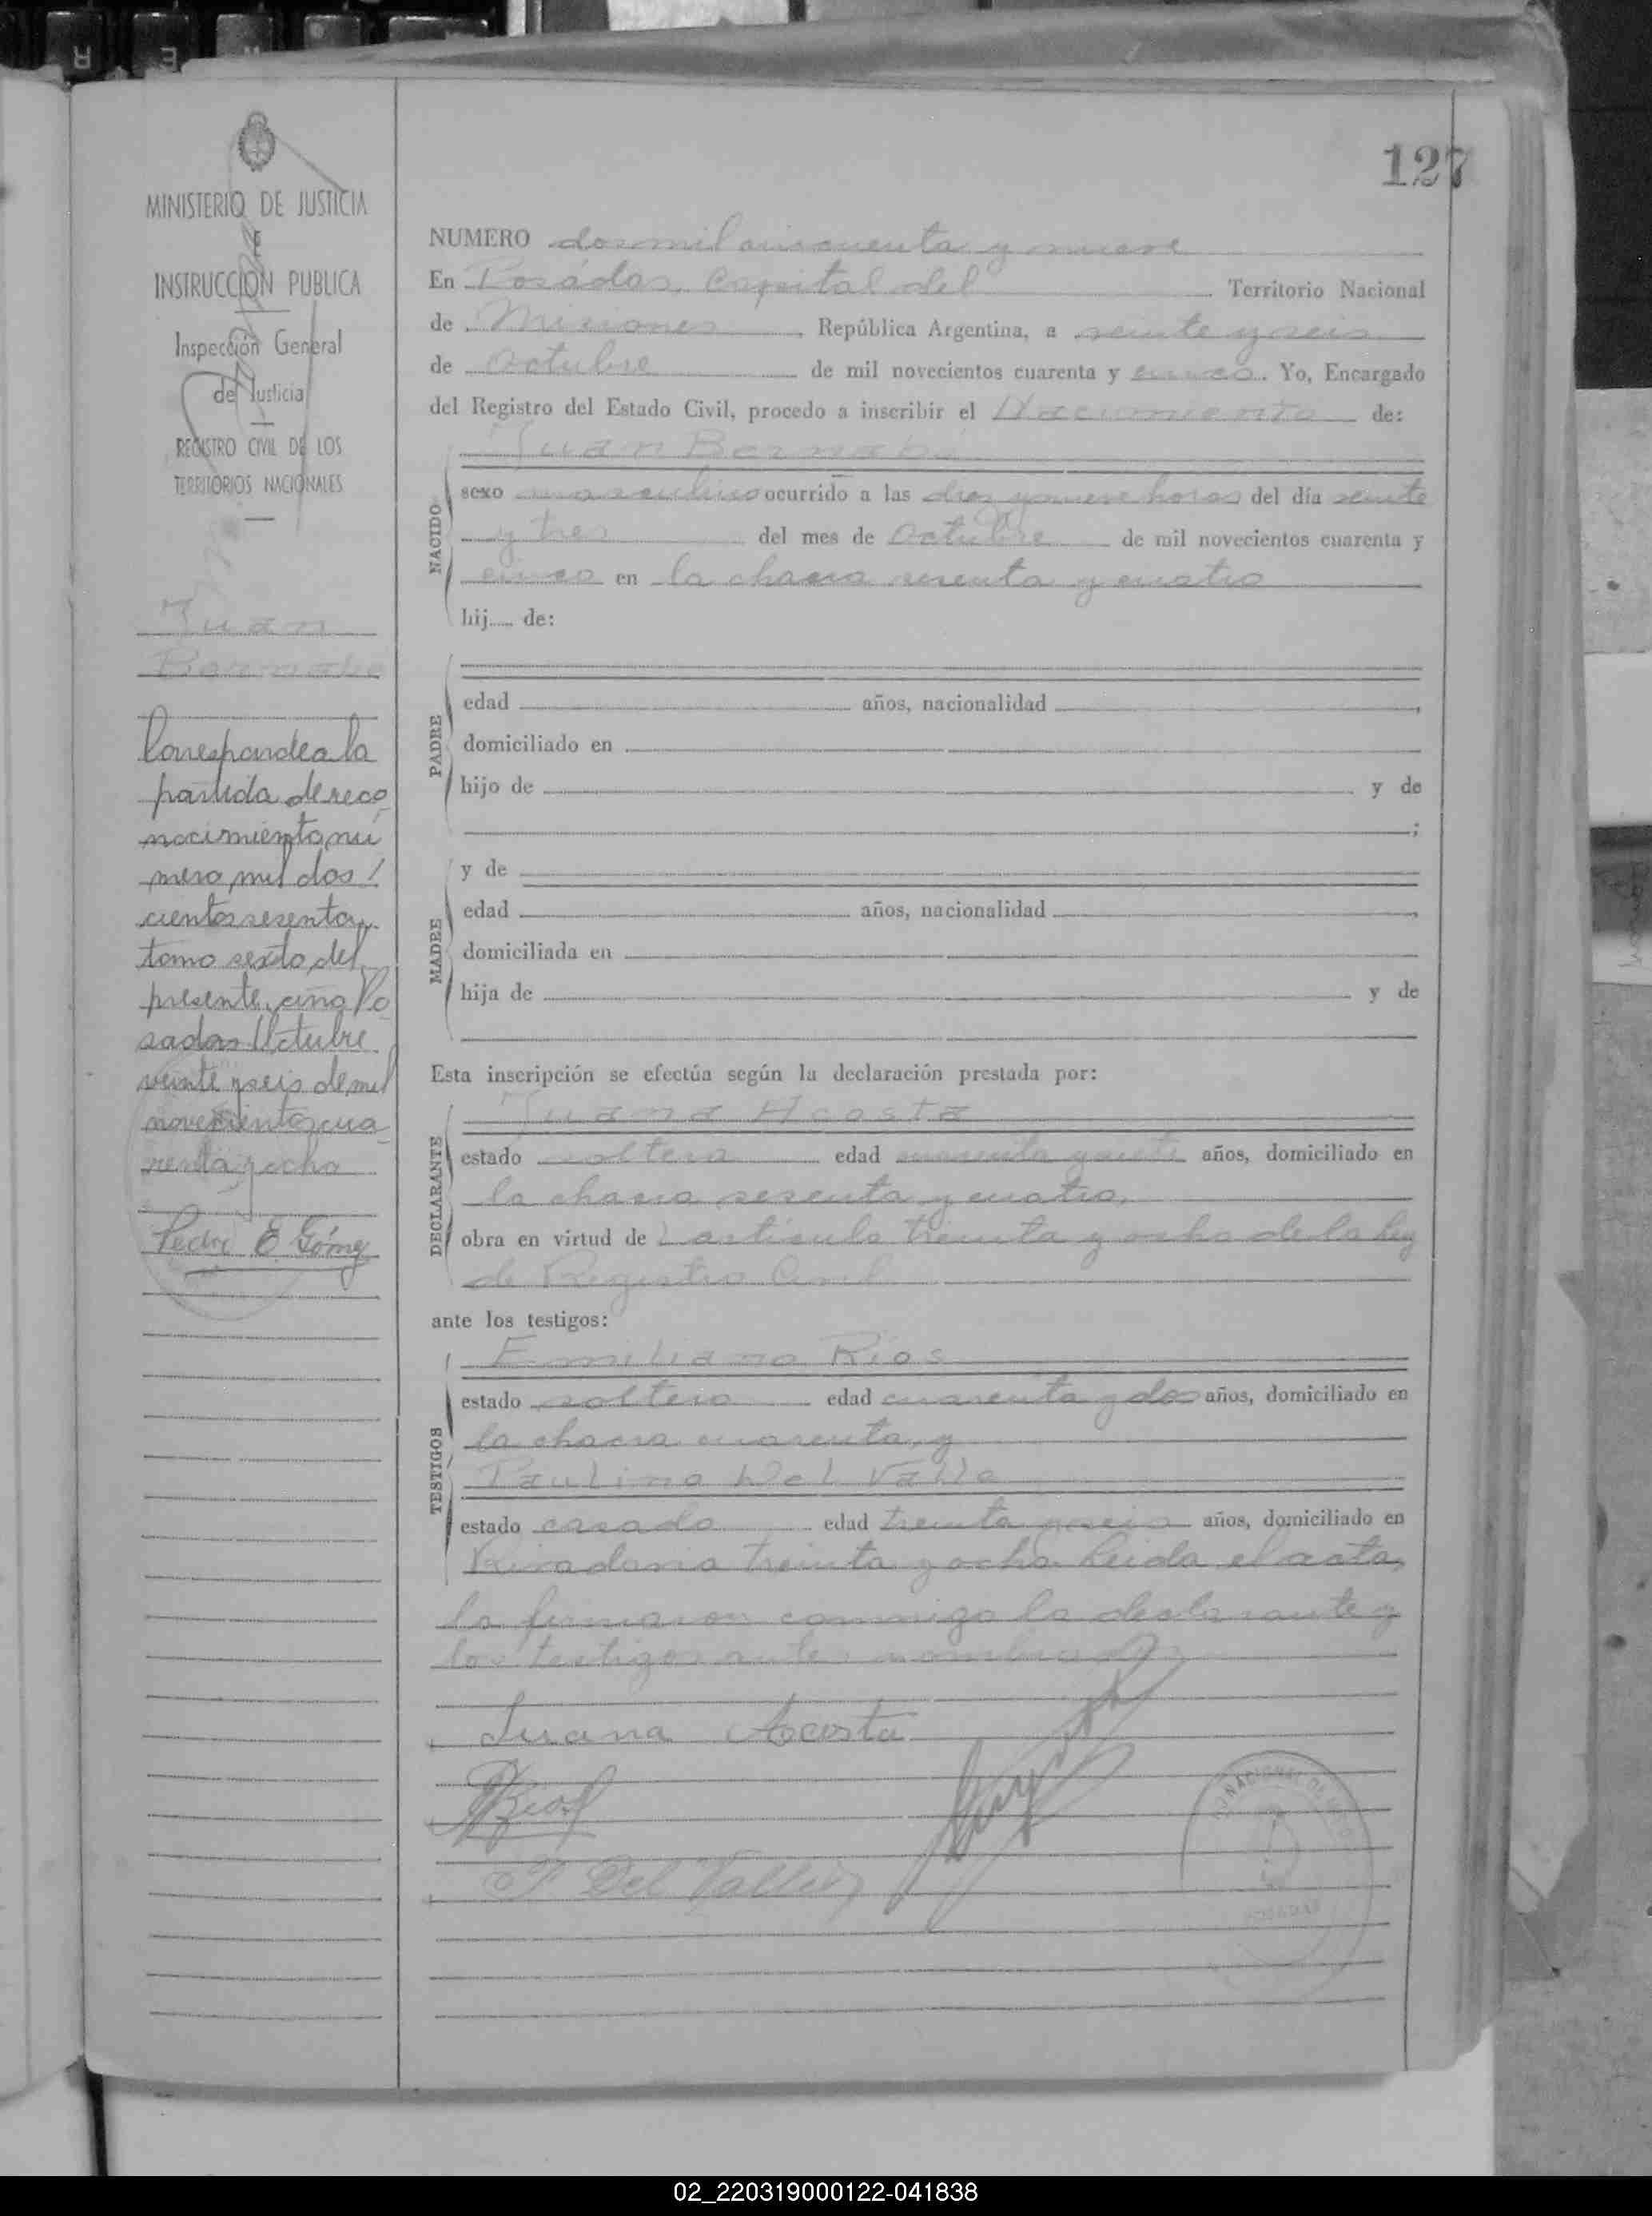 127
MINISTERIO DE JUSTICIA
E
INSTRUCCION PUBLICA
Inspección General
de Justicia
REGISTRO CIVIL DE LOS
TERRITORIOS NACIONALES
Juan
Bernabe
Corresponde a la
partida de reco
nocimiento nú
mero mil dos
cientos sesenta
tomo sexto del
presente año Po
sadas Octubre
veinte y seis de mil
novecientos cua
renta y ocho
Pedro E Gómez
NUMERO dos mil cincuenta y nueve
En Posadas, Capital del Territorio Nacional
de Misiones, República Argentina, a veinte y seis
de Octubre de mil novecientos cuarenta y cinco. Yo, Encargado
del Registro del Estado Civil, procedo a inscribir el Nacimiento de:
Juan Bernabé
NACIDO
sexo masculino ocurrido a las diez y nueve horas del día veinte
y tres del mes de Octubre de mil novecientos cuarenta y
cinco en la chacra sesenta y cuatro
hij..... de:
PADRE
edad años, nacionalidad
domiciliado en
hijo de y de
;
MADRE
y de
edad años, nacionalidad
domiciliada en
hija de y de
Esta inscripción se efectúa según la declaración prestada por:
DECLARANTE
Juana Acosta
estado soltera edad cuarenta y años, domiciliado en
la chacra sesenta y cuatro,
obra en virtud del artículo treinta y ocho de la ley
de Registro Civil
ante los testigos:
TESTIGOS
Emiliano Ríos
estado soltero edad cuarenta y dos años, domiciliado en
la chacra cuarenta, y
Paulino Del Valle
estado casado edad treinta y seis años, domiciliado en
Rivadavia treinta y ocho. Leida el acta,
la firmaron conmigo la declarante y
los testigos antes nombrados
Juana Acosta
Rios
P Del Valle
POSADAS
02_220319000122-041838